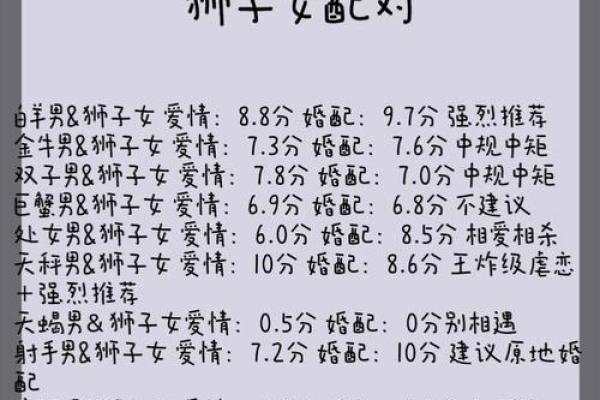 狮子女配对
白羊男&狮子女 爱情：8.8分 婚配：9.7分 强烈推荐
金牛男&狮子女 爱情：7.3分 婚配：7.6分 中规中矩
双子男&狮子女 爱情：7.8分 婚配：7.0分 中规中矩
巨蟹男&狮子女 爱情：6.9分 婚配：6.8分 不建议
处女男&狮子女 爱情：6.0分 婚配：8.5分 相爱相杀
天秤男&狮子女 爱情：10分 婚配：8.6分 王炸级虐恋
+强烈推荐
天蝎男&狮子女爱情：0.5分 婚配：0分别相遇
射手男&狮子女 爱情：7.2分 婚配：10分 建议原地婚
配